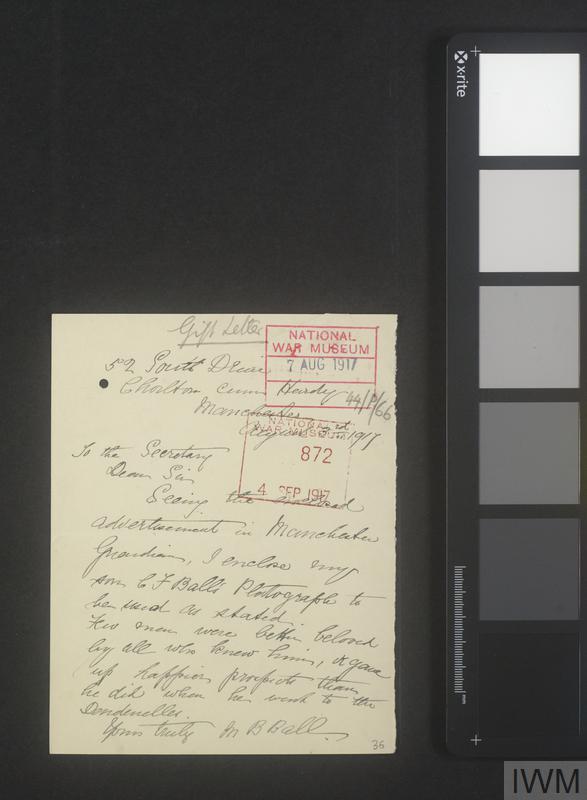 x-rite
Gift Letter
NATIONAL
WAR MUSEUM
7 AUG 1917
52 South Drive
Chorlton cum Hardy
44/P/66
Manchester
August 3rd 1917
NATIONAL
WAR MUSEUM
872
4 SEP 1917
To the Secretary
Dear Sir
Seeing the
advertisement in Manchester
Guardian, I enclose my
son C F Ball's Photograph to
be used as stated.
Few men were better beloved
by all who knew him, & gave
up happier prospects than
he did when he went to the
Dardenelles.
Yours truly M B Ball.
36
mm
IWM